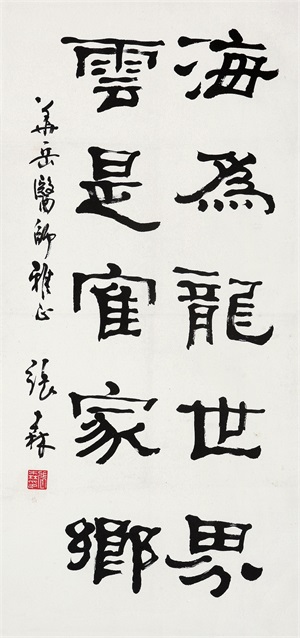 海為龍世界
雲是寉家鄉
華岳醫師雅正
張森